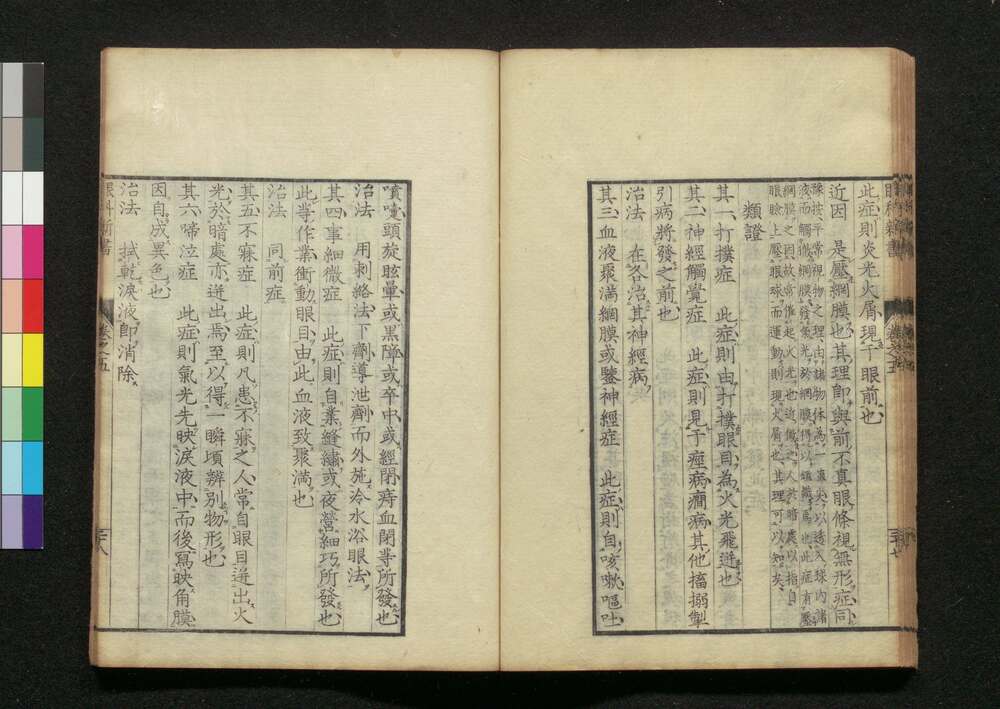 此症則炎光火屑現于眼前也
近因 是壓綱膜也其理即與前不真眼條視無形症同
類證
其一打撲症 此症則由打撲眼目為火光飛迸也
其二神經觸覺症 此症則見于痙病癇病其他搐搦掣
引病將發之前也
治法 在各治其神經病
其三血液聚滿綱膜或鑒神經症 此症則自咳嗽嘔吐
噴嚏頭旋眩暈或黑障或卒中或經閉痔血閉等所發也
治法 用刺絡法下劑導泄劑而外施冷水浴眼法
其四事細微症 此症則自業縫繡或夜營細巧所發也
此等作業衝動眼目由此血液致聚滿也
治法 同前症
其五不寐症 此症則凡患不寐之人常自眼目迸出火
光於暗處亦迸出焉至以得一瞬頃辨別物形也
其六啼泣症 此症則氣光先映淚液中而後寫映角膜
因自成異色也
治法 拭乾淚液即消除
眼科新書 卷之五